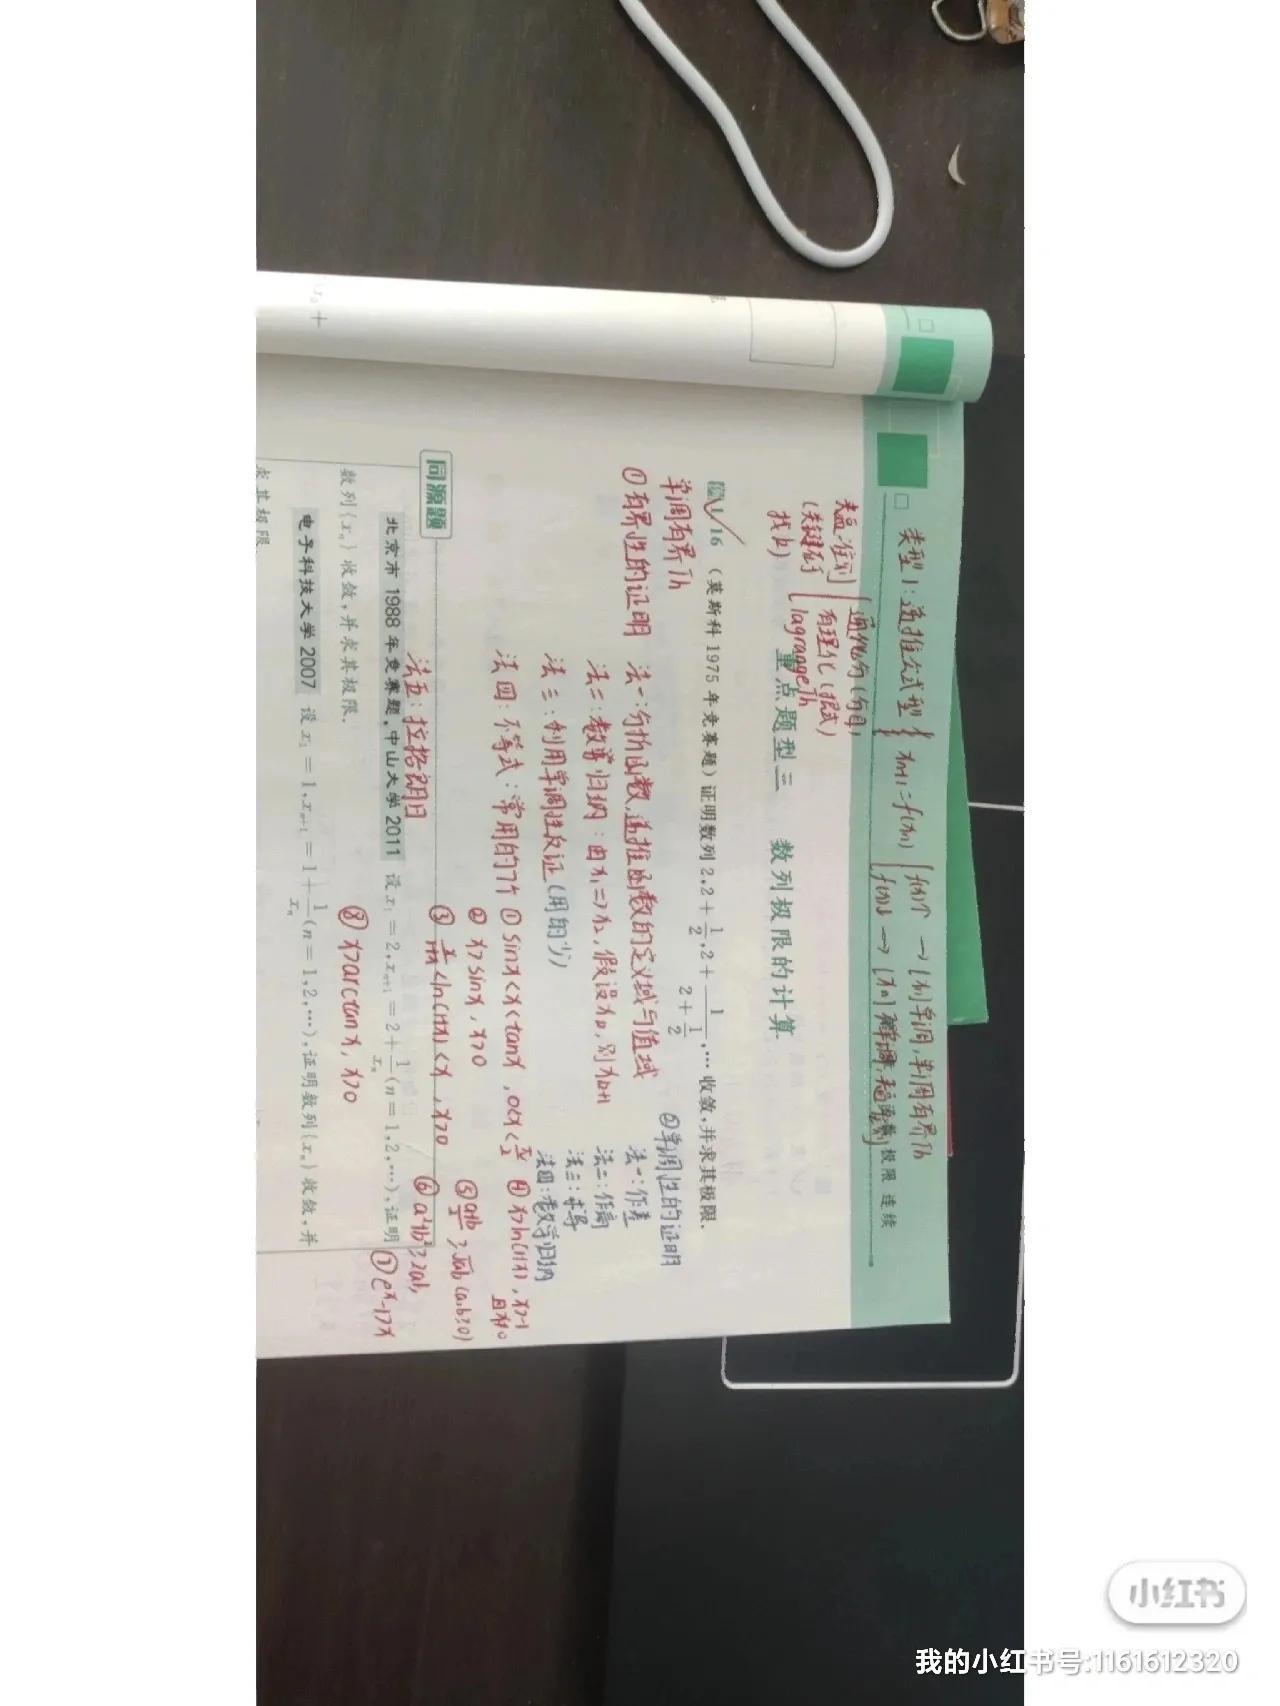 函数 极限 连续
类型1:递推公式型 { xn+1=f(xn) { f(x)↑ → {xn}单调,单调有界Th
f(x)↓ → {xn}不单调,夹逼准则
夹逼准则 { 通俗的
有理化(根式)
lagrangeTh
(关键在于
找k)
重点题型二 数列极限的计算
例1/16 (莫斯科1975年竞赛题)证明数列2,2+1/2,2+1/(2+1/2),…收敛,并求其极限.
单调有界Th
①有界性的证明 法一:分析函数,递推函数的定义域与值域
法二:数学归纳:由x1=>x2,假设xn,则xn+1
法三:利用单调性反证(用的少)
法四:不等式:常用的7个 ① sinx<x<tanx,0<x<π/2
② x>sinx,x>0
③ x/(1+x)<ln(1+x)<x,x>0
④ x>ln(1+x),x>-1
且x≠0
⑤ (a+b)/2≥√ab(a,b≥0)
⑥ a²+b²≥2ab
⑦ eˣ-1>x
⑧ x>arctanx,x>0
法五:拉格朗日
②单调性的证明
法一:作差
法二:作商
法三:求导
法四:数学归纳
同源题
北京市1988年竞赛题,中山大学2011 设x₁=2,xₙ₊₁=2+1/xₙ(n=1,2,…),证明
数列{xₙ}收敛,并求其极限.
电子科技大学2007 设x₁=1,xₙ₊₁=1+1/xₙ(n=1,2,…),证明数列{xₙ}收敛,并
求其极限.
小红书
我的小红书号:1161612320